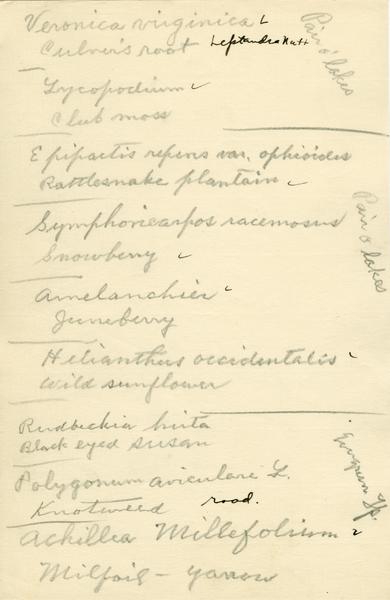 Veronica virginica L
Culver's root Leptandra Nutt
Pair o' lakes
Lycopodium
Club moss
Epipactis repens var. ophioides
Rattlesnake plantain
Symphoricarpos racemosus
Snowberry
Pair o' lakes
Amelanchier
Juneberry
Helianthus occidentalis
Wild sunflower
Rudbeckia hirta
Black eyed susan
Polygonum aviculare L.
Knotweed road.
Achillea Millefolium
Milfoil - yarrow